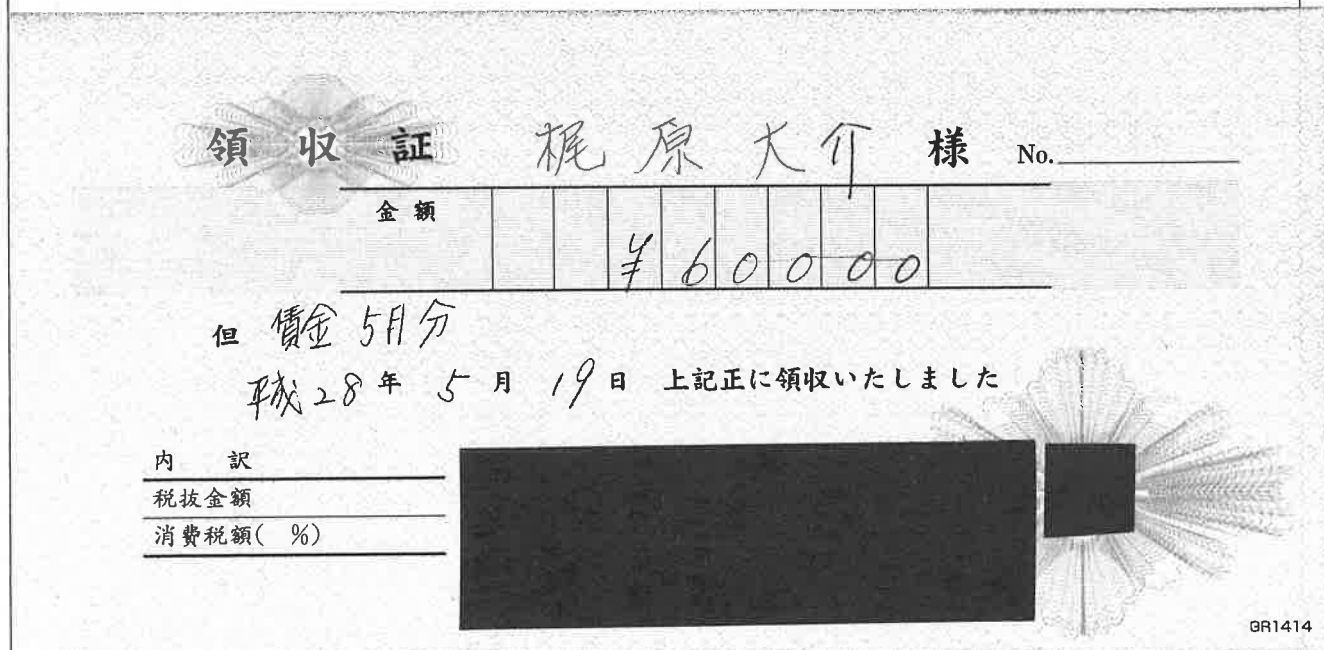 領収証 梶原大介 様 No.
金額 ¥60000
但 賃金5月分
平成28年 5月 19日 上記正に領収いたしました
内 訳
税抜金額
消費税額( %)
GR1414